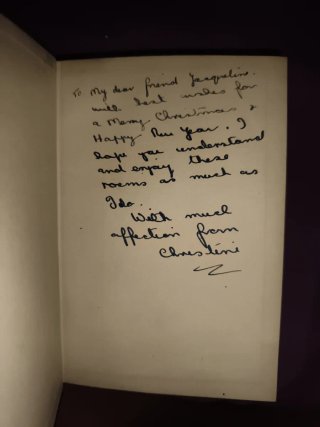 To My dear friend Jacqueline.
with best wishes for
a Merry Christmas &
Happy New Year. I
hope you understand
and enjoy these
poems as much as
I do.
With much
affection from
Christine